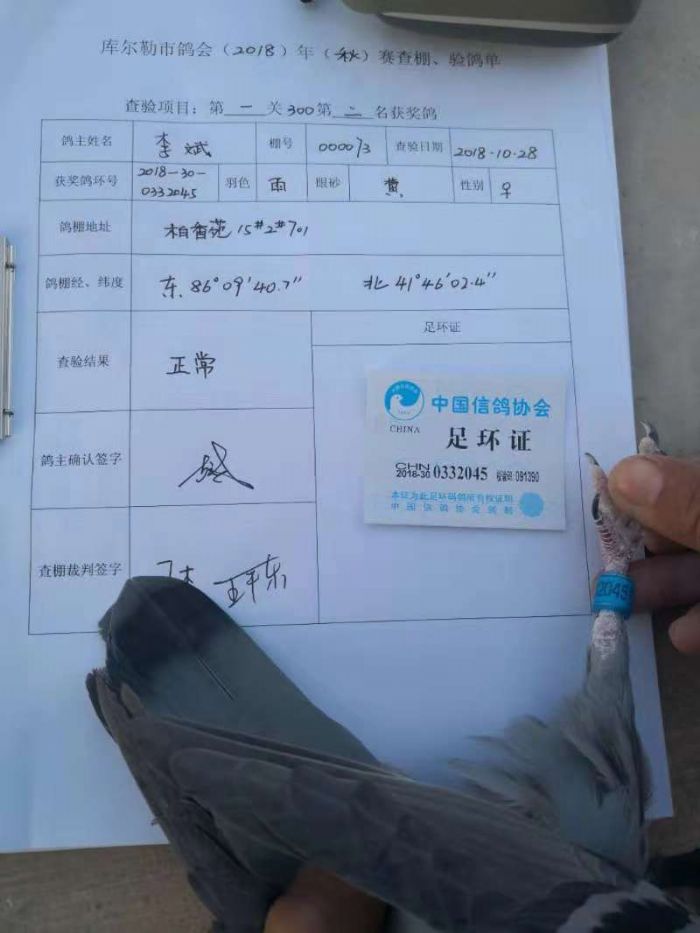 库尔勒市鸽会（2018）年（秋）赛查棚、验鸽单
查验项目：第一关300第二名获奖鸽
鸽主姓名 李斌 棚号 000013 查验日期 2018.10.28
获奖鸽环号 2018-30-0332045 羽色 雨 眼砂 黄 性别 ♀
鸽棚地址 柏香苑15#2#701
鸽棚经、纬度 东86°09′40.7″ 北41°46′02.4″
足环证
查验结果 正常
中国信鸽协会
CHINA
足环证
CHN
2018-30 0332045 检验码:081390
本证为此足环信鸽所有权证明
中国信鸽协会制
鸽主确认签字
查棚裁判签字 王平东
2045